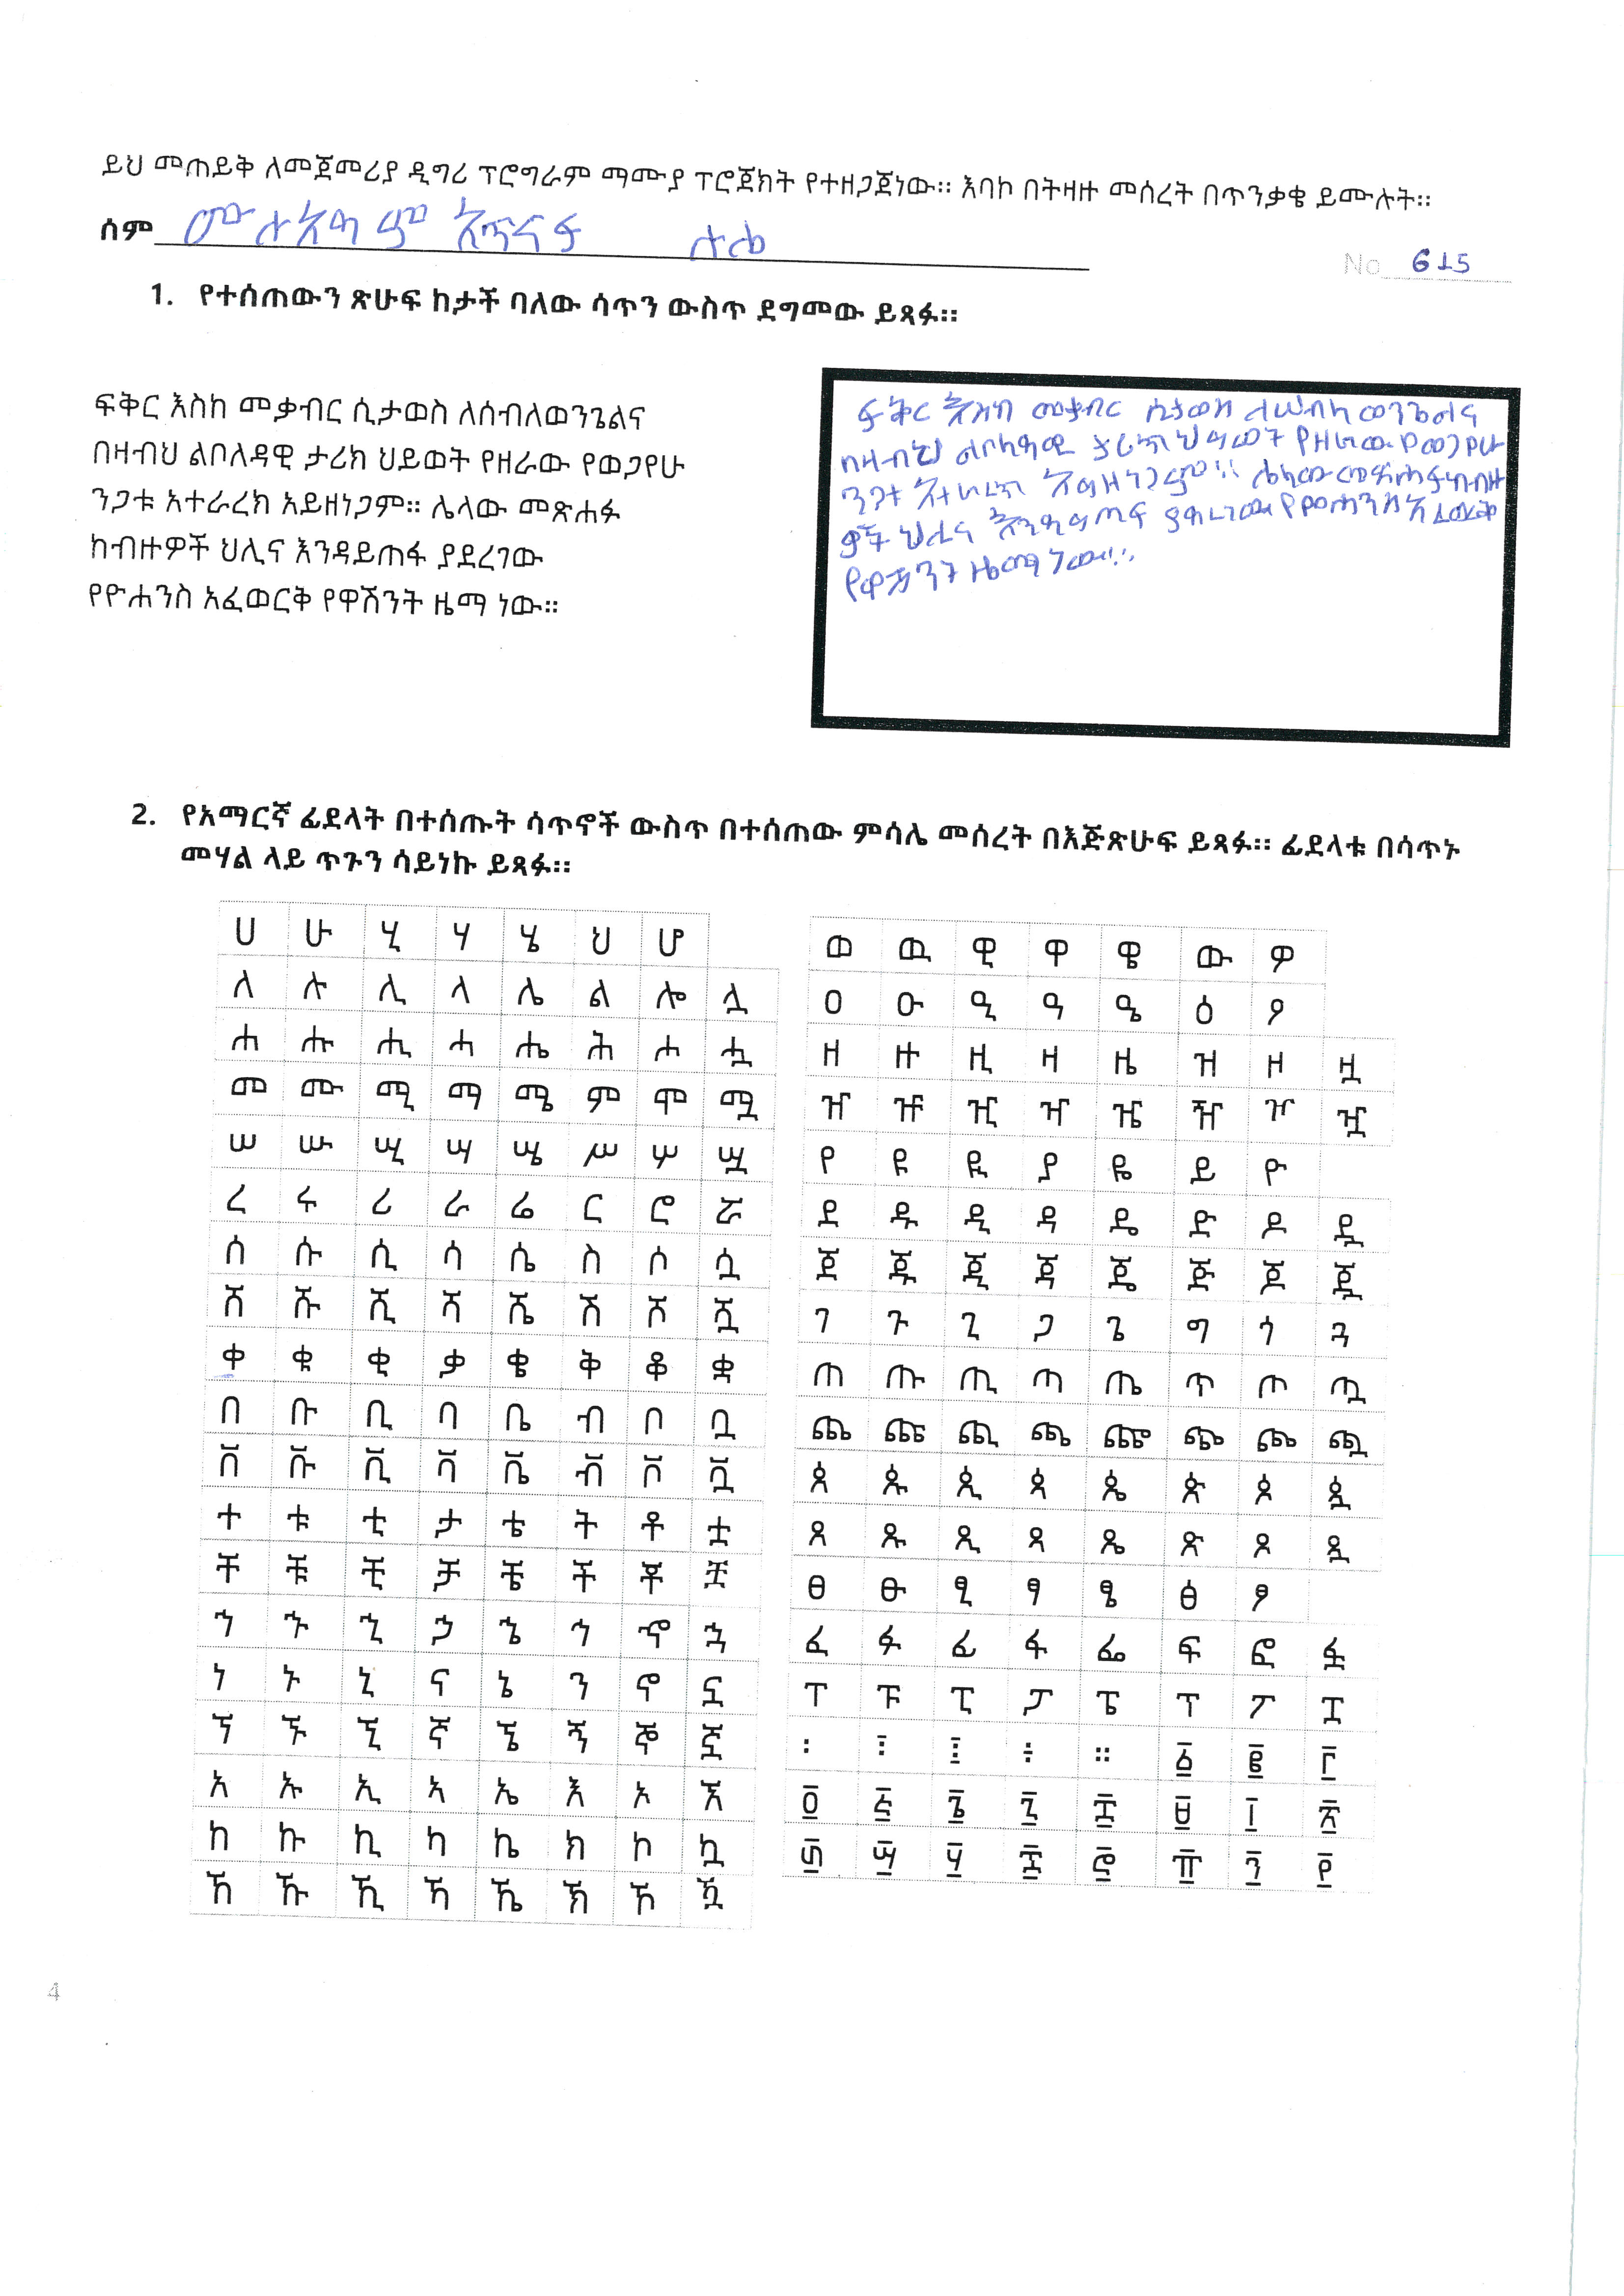 ይህ መጠይቅ ለመጀመሪያ ዲግሪ ፕሮግራም ማሙያ ፕሮጀክት የተዘጋጀነው። እባኮ በትዛዙ መሰረት በጥንቃቄ ይሙሉት።
ስም
No 615
1. የተሰጠውን ጽሁፍ ከታች ባለው ሳጥን ውስጥ ደግመው ይጻፉ።
ፍቅር እስከ መቃብር ሲታወስ ለሰብለወንጌልና
በዛብህ ልቦለዳዊ ታሪክ ህይወት የዘራው የወጋየሁ
ንጋቱ አተራረክ አይዘነጋም። ሌላው መጽሐፉ
ከብዙዎች ህሊና እንዳይጠፋ ያደረገው
የዮሐንስ አፈወርቅ የዋሽንት ዜማ ነው።
ፍቅር እስከ መቃብር ሲታወስ ለሠብለ ወንጌልና
በዛብህ ልቦለዳዊ ታሪክ ህይወት የዘራው የወጋየሁ
ንጋቱ አተራረክ አይዘነጋም። ሌላው መጽሐፉ ከብዙ
ዎች ህሊና እንዳይጠፍ ያደረገው የዮሐንስ አፈወርቅ
የዋሽንት ዜማ ነው።
2. የአማርኛ ፊደላት በተሰጡት ሳጥኖች ውስጥ በተሰጠው ምሳሌ መሰረት በእጅጽሁፍ ይጻፉ። ፊደላቱ በሳጥኑ
መሃል ላይ ጥጉን ሳይነኩ ይጻፉ።
ሀ ሁ ሂ ሃ ሄ ህ ሆ
ለ ሉ ሊ ላ ሌ ል ሎ ሏ
ሐ ሑ ሒ ሓ ሔ ሕ ሖ ሗ
መ ሙ ሚ ማ ሜ ም ሞ ሟ
ሠ ሡ ሢ ሣ ሤ ሥ ሦ ሧ
ረ ሩ ሪ ራ ሬ ር ሮ ሯ
ሰ ሱ ሲ ሳ ሴ ስ ሶ ሷ
ሸ ሹ ሺ ሻ ሼ ሽ ሾ ሿ
ቀ ቁ ቂ ቃ ቄ ቅ ቆ ቋ
በ ቡ ቢ ባ ቤ ብ ቦ ቧ
ቨ ቩ ቪ ቫ ቬ ቭ ቮ ቯ
ተ ቱ ቲ ታ ቴ ት ቶ ቷ
ቸ ቹ ቺ ቻ ቼ ች ቾ ቿ
ኀ ኁ ኂ ኃ ኄ ኅ ኆ ኋ
ነ ኑ ኒ ና ኔ ን ኖ ኗ
ኘ ኙ ኚ ኛ ኜ ኝ ኞ ኟ
አ ኡ ኢ ኣ ኤ እ ኦ ኧ
ከ ኩ ኪ ካ ኬ ክ ኮ ኳ
ኸ ኹ ኺ ኻ ኼ ኽ ኾ ዃ
ወ ዉ ዊ ዋ ዌ ው ዎ
ዐ ዑ ዒ ዓ ዔ ዕ ዖ
ዘ ዙ ዚ ዛ ዜ ዝ ዞ ዟ
ዠ ዡ ዢ ዣ ዤ ዥ ዦ ዧ
የ ዩ ዪ ያ ዬ ይ ዮ
ደ ዱ ዲ ዳ ዴ ድ ዶ ዷ
ጀ ጁ ጂ ጃ ጄ ጅ ጆ ጇ
ገ ጉ ጊ ጋ ጌ ግ ጎ ጓ
ጠ ጡ ጢ ጣ ጤ ጥ ጦ ጧ
ጨ ጩ ጪ ጫ ጬ ጭ ጮ ጯ
ጰ ጱ ጲ ጳ ጴ ጵ ጶ ጷ
ጸ ጹ ጺ ጻ ጼ ጽ ጾ ጿ
ፀ ፁ ፂ ፃ ፄ ፅ ፆ
ፈ ፉ ፊ ፋ ፌ ፍ ፎ ፏ
ፐ ፑ ፒ ፓ ፔ ፕ ፖ ፗ
፡ ፤ ፧ ፥ ። ፩ ፪ ፫
፬ ፭ ፮ ፯ ፰ ፱ ፲ ፳
፴ ፵ ፶ ፷ ፸ ፹ ፺ ፻
4